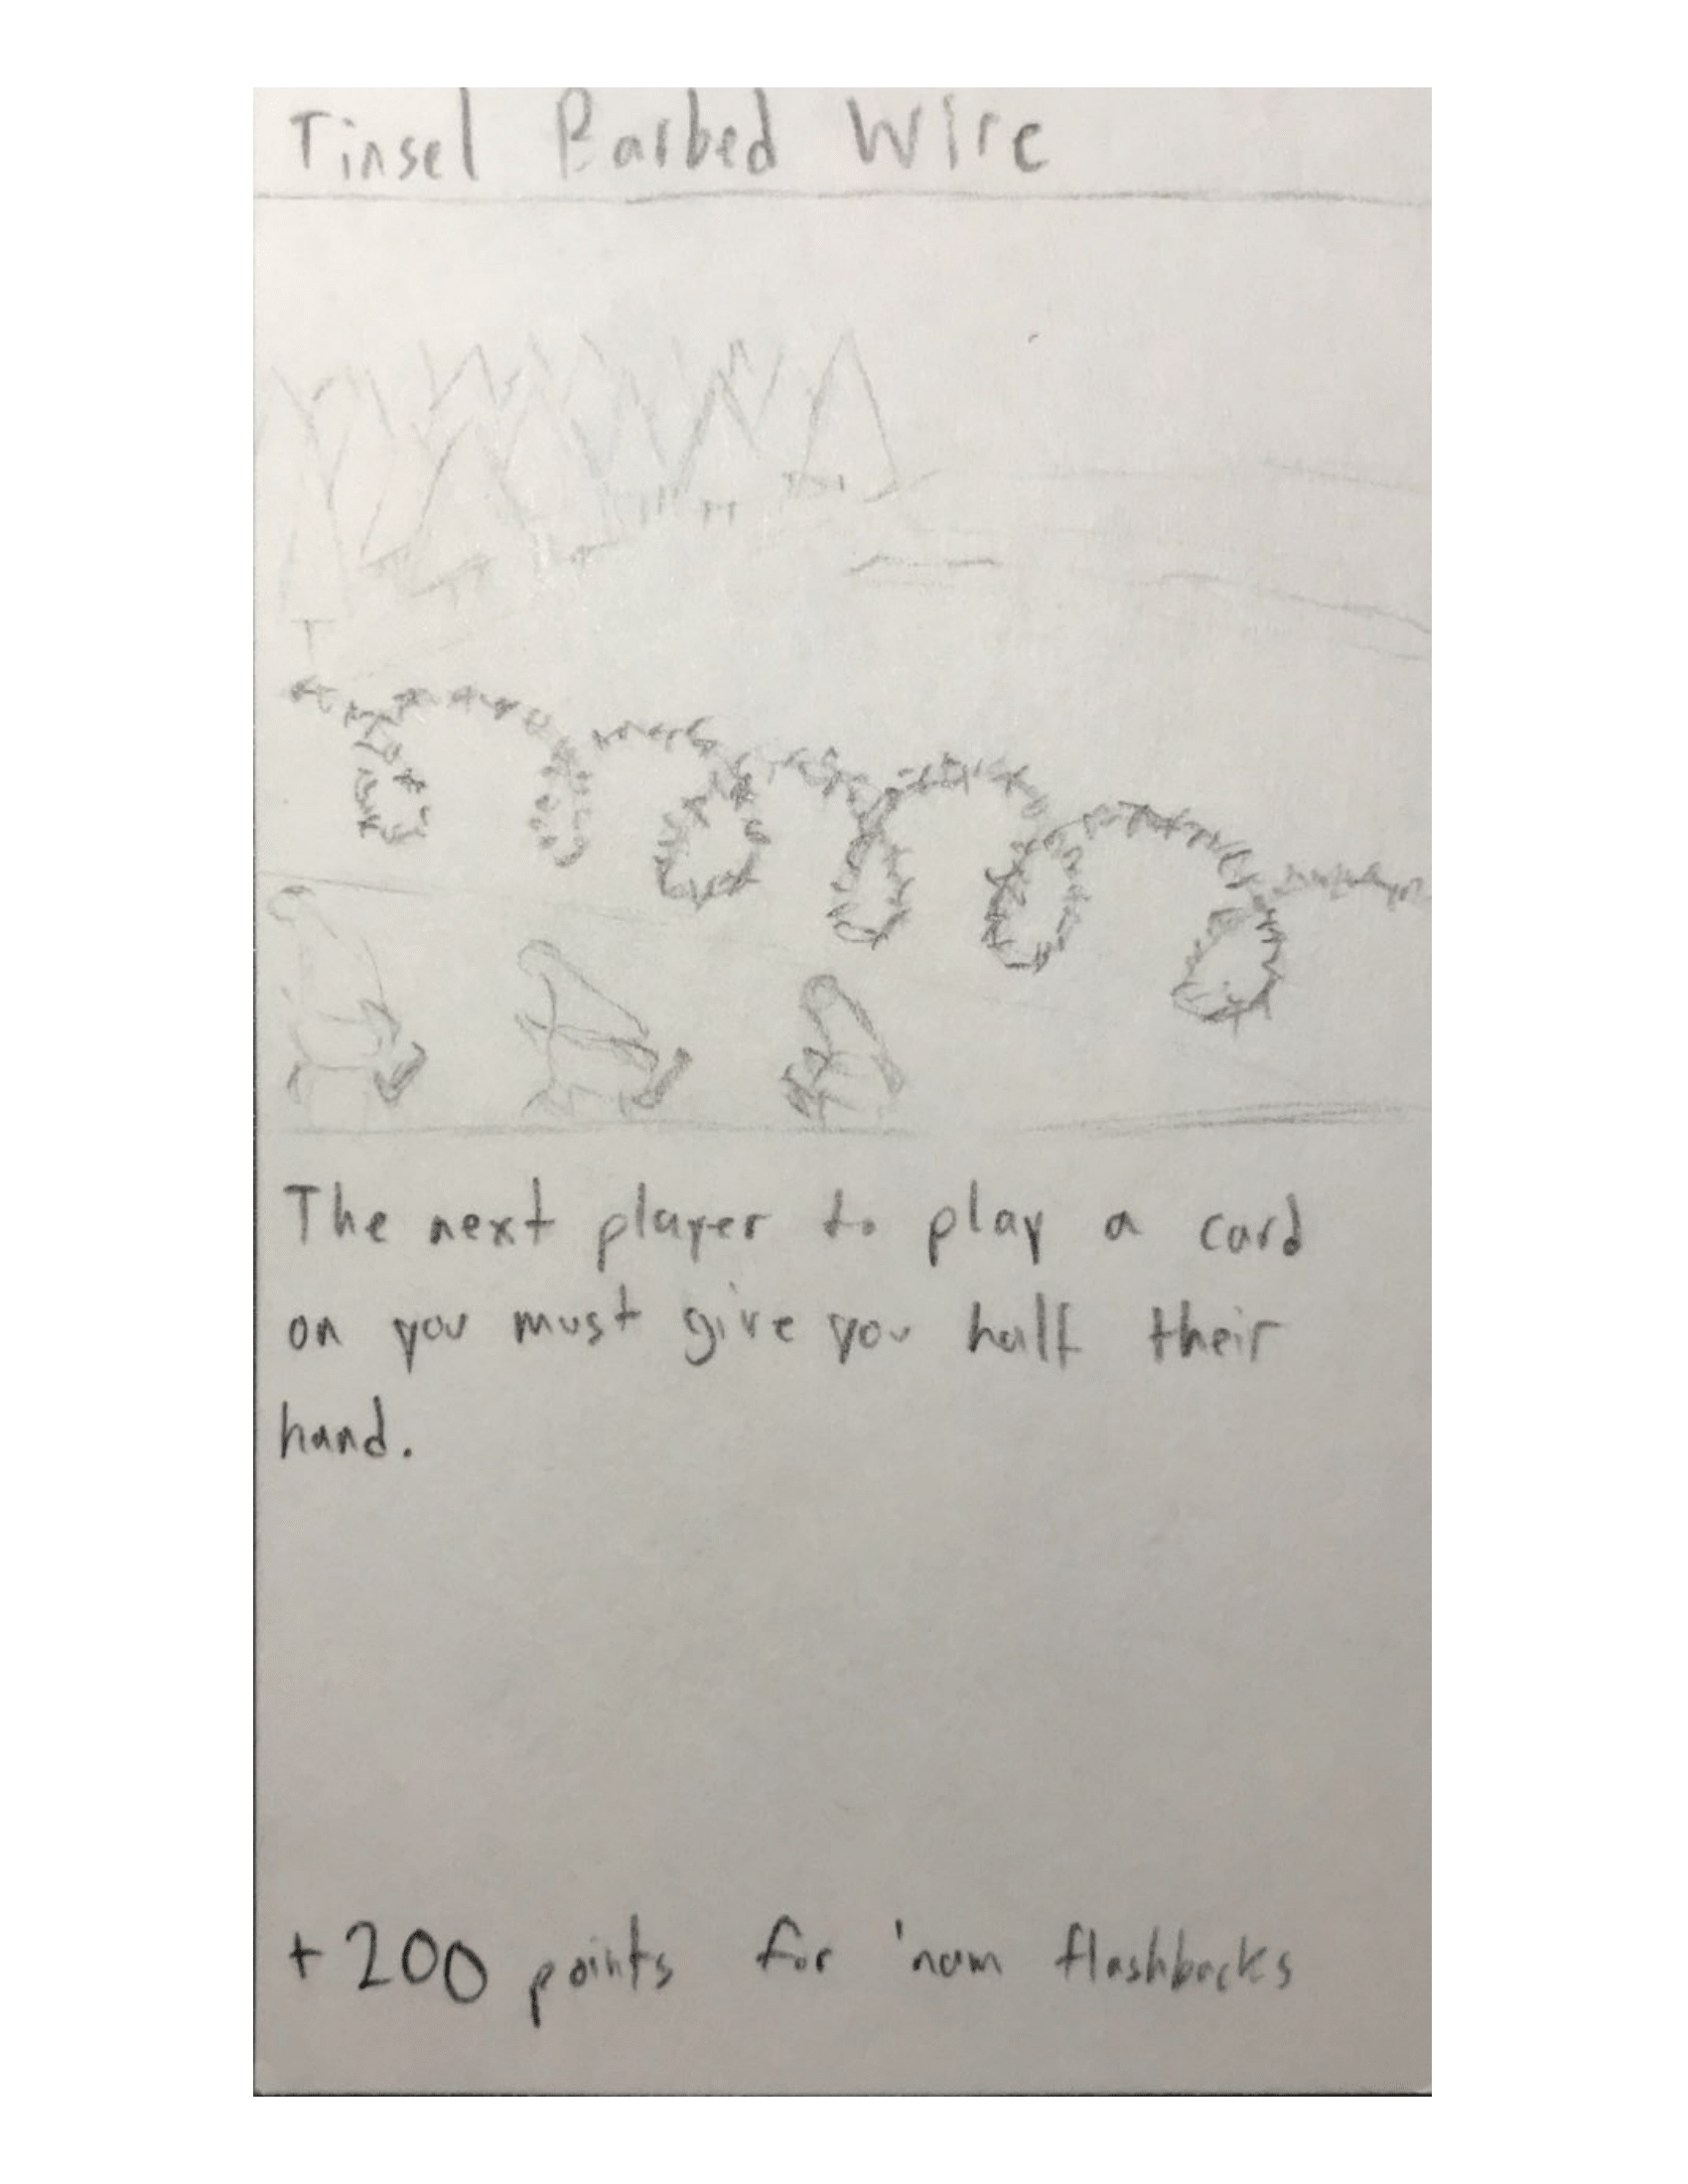 Tinsel Barbed Wire
The next player to play a card
on you must give you half their
hand.
+200 points for 'nam flashbacks